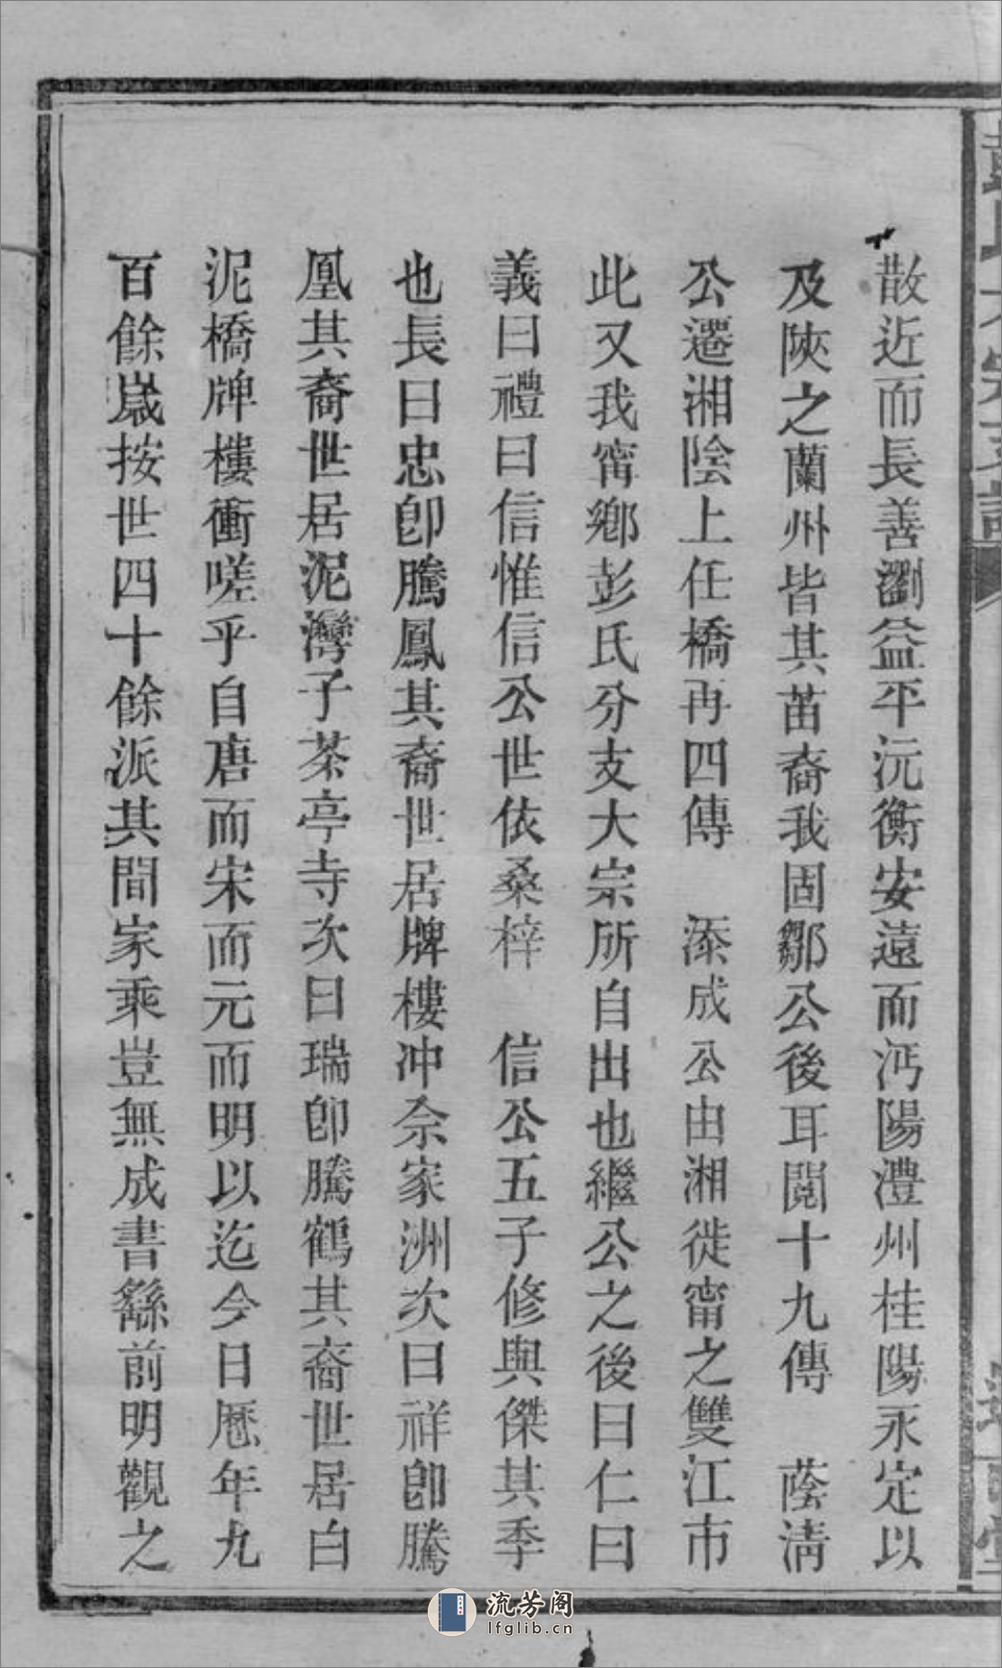 散近而長善瀏益平沅衡安遠而沔陽澧州桂陽永定以
及陝之蘭州皆其苗裔我固鄒公後耳閱十九傳　蔭淸
公遷湘陰上任橋再四傳　添成公由湘徙甯之雙江市
此又我甯鄉彭氏分支大宗所自出也繼公之後曰仁曰
義曰禮曰信惟信公世依桑梓　信公五子修與傑其季
也長曰忠卽騰鳳其裔世居牌樓冲佘家洲次曰祥卽騰
凰其裔世居泥灣子茶亭寺次曰瑞卽騰鶴其裔世居白
泥橋牌樓衝嗟乎自唐而宋而元而明以迄今日歷年九
百餘嵗按世四十餘派其間家乘豈無成書繇前明觀之
流芳阁
lfglib.cn